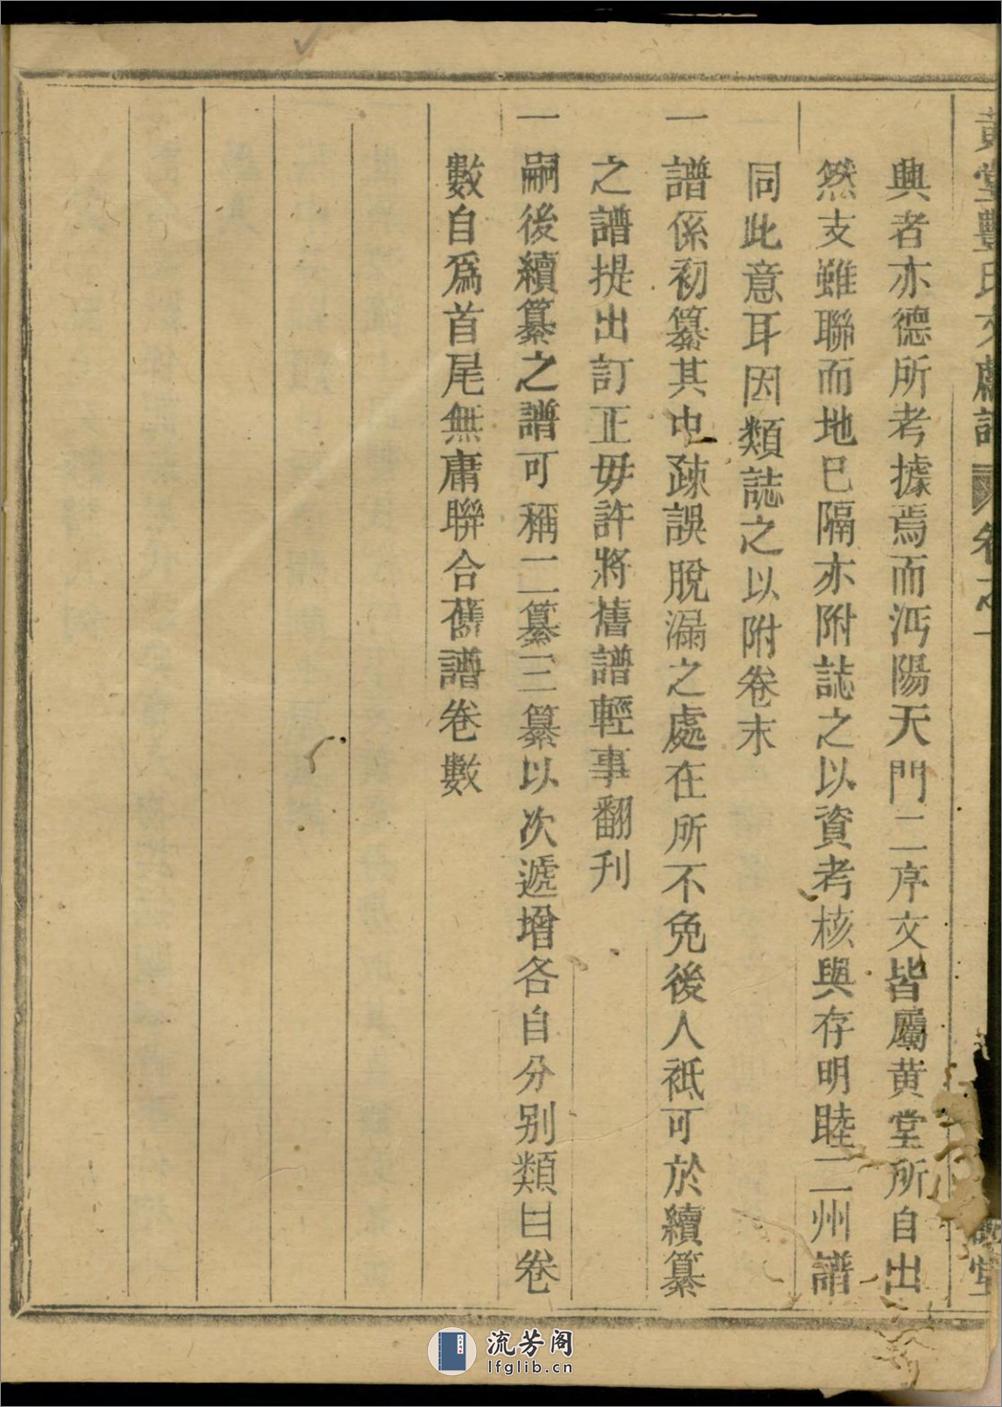 黃堂豐氏文獻譜 卷之一
興者亦德所考據焉而沔陽天門二序文皆屬黄堂所自出
然支雖聯而地已隔亦附誌之以資考核與存明睦二州譜
同此意耳因類誌之以附卷末
一譜係初纂其中疎誤脫漏之處在所不免後人祗可於續纂
之譜提出訂正毋許將舊譜輕事翻刋
一嗣後續纂之譜可稱二纂三纂以次遞增各自分别類曰卷
數自爲首尾無庸聯合舊譜卷數
流芳阁
lfglib.cn